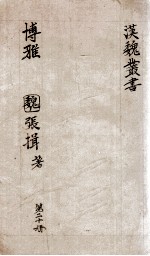 漢魏叢書
博雅 魏張揖著
第二十册